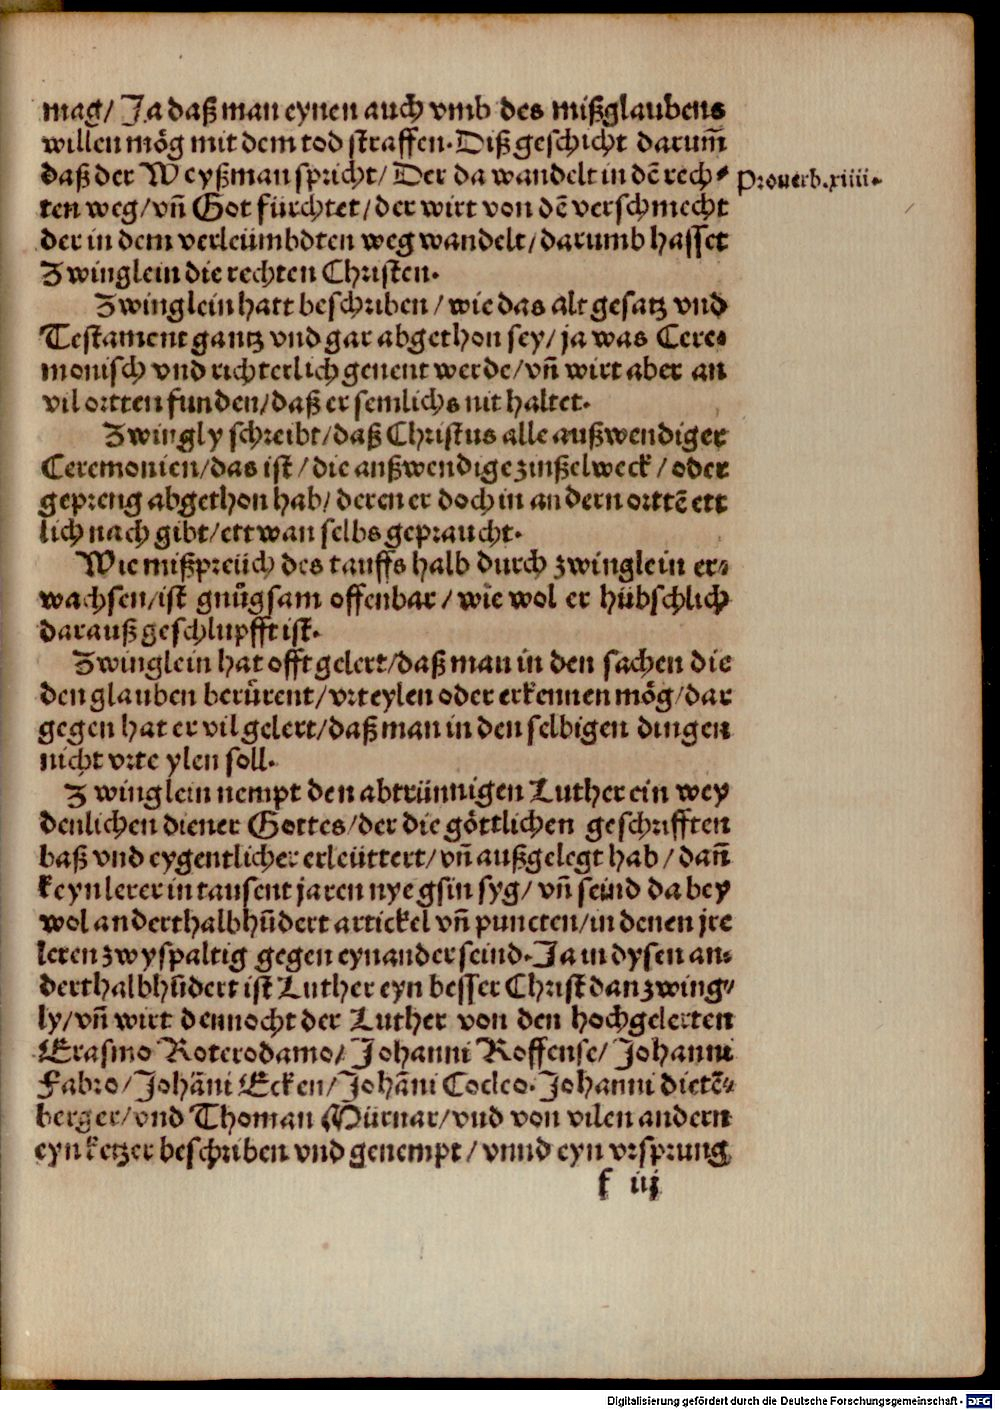 mag/ Ja daß man eynen auch vmb des mißglaubens
willen mög mit dem tod straffen. Diß geschicht darum̃
daß der Weyßman spricht/ Der da wandelt in dẽ rech⸗
Prouerb.xiiii.
ten weg/ vñ Got fürchtet/ der wirt von dẽ verschmecht
der in dem verleümbdten weg wandelt/ darumb hasset
Zwinglein die rechten Christen.
Zwinglein hatt beschriben/ wie das alt gesatz vnd
Testament gantz vnd gar abgethon sey/ ja was Cere⸗
monisch vnd richterlich genent werde/ vñ wirt aber an
vil ortten funden/ daß er semlichs nit haltet.
Zwingly schreibt/ daß Christus alle außwendiger
Ceremonien/ das ist/ die außwendige zinßelweck/ oder
gepreng abgethon hab/ deren er doch in andern orttẽ ett
lich nach gibt/ ettwan selbs gepraucht.
Wie mißpreüch des tauffs halb durch zwinglein er⸗
wachsen/ ist gnůgsam offenbar/ wie wol er hübschlich
darauß geschlupfft ist.
Zwinglein hat offt gelert/ daß man in den sachen die
den glauben berůrent/ vrteylen oder erkennen mög/ dar
gegen hat er vil gelert/ daß man in den selbigen dingen
nicht vrteylen soll.
Zwinglein nempt den abtrünnigen Luther ein wey
denlichen diener Gottes/ der die göttlichen geschrifften
baß vnd eygentlicher erleüttert/ vñ außgelegt hab/ dañ
keyn lerer in tausent jaren nye gsin syg/ vñ seind da bey
wol anderthalbhũdert artickel vñ puncten/ in denen jre
leren zwyspaltig gegen eynander seind. Ja in dysen an⸗
derthalbhũdert ist Luther eyn besser Christ dan zwing⸗
ly/ vñ wirt dennocht der Luther von den hochgelerten
Erasmo Roterodamo/ Johanni Roffense/ Johanni
Fabro/ Johãni Ecken/ Johãni Cocleo. Johanni dietẽ⸗
berger/ vnd Thoman Můrnar/ vnd von vilen andern
eyn ketzer beschriben vnd genempt/ vnnd eyn vrsprung
f iij
Digitalisierung gefördert durch die Deutsche Forschungsgemeinschaft - DFG